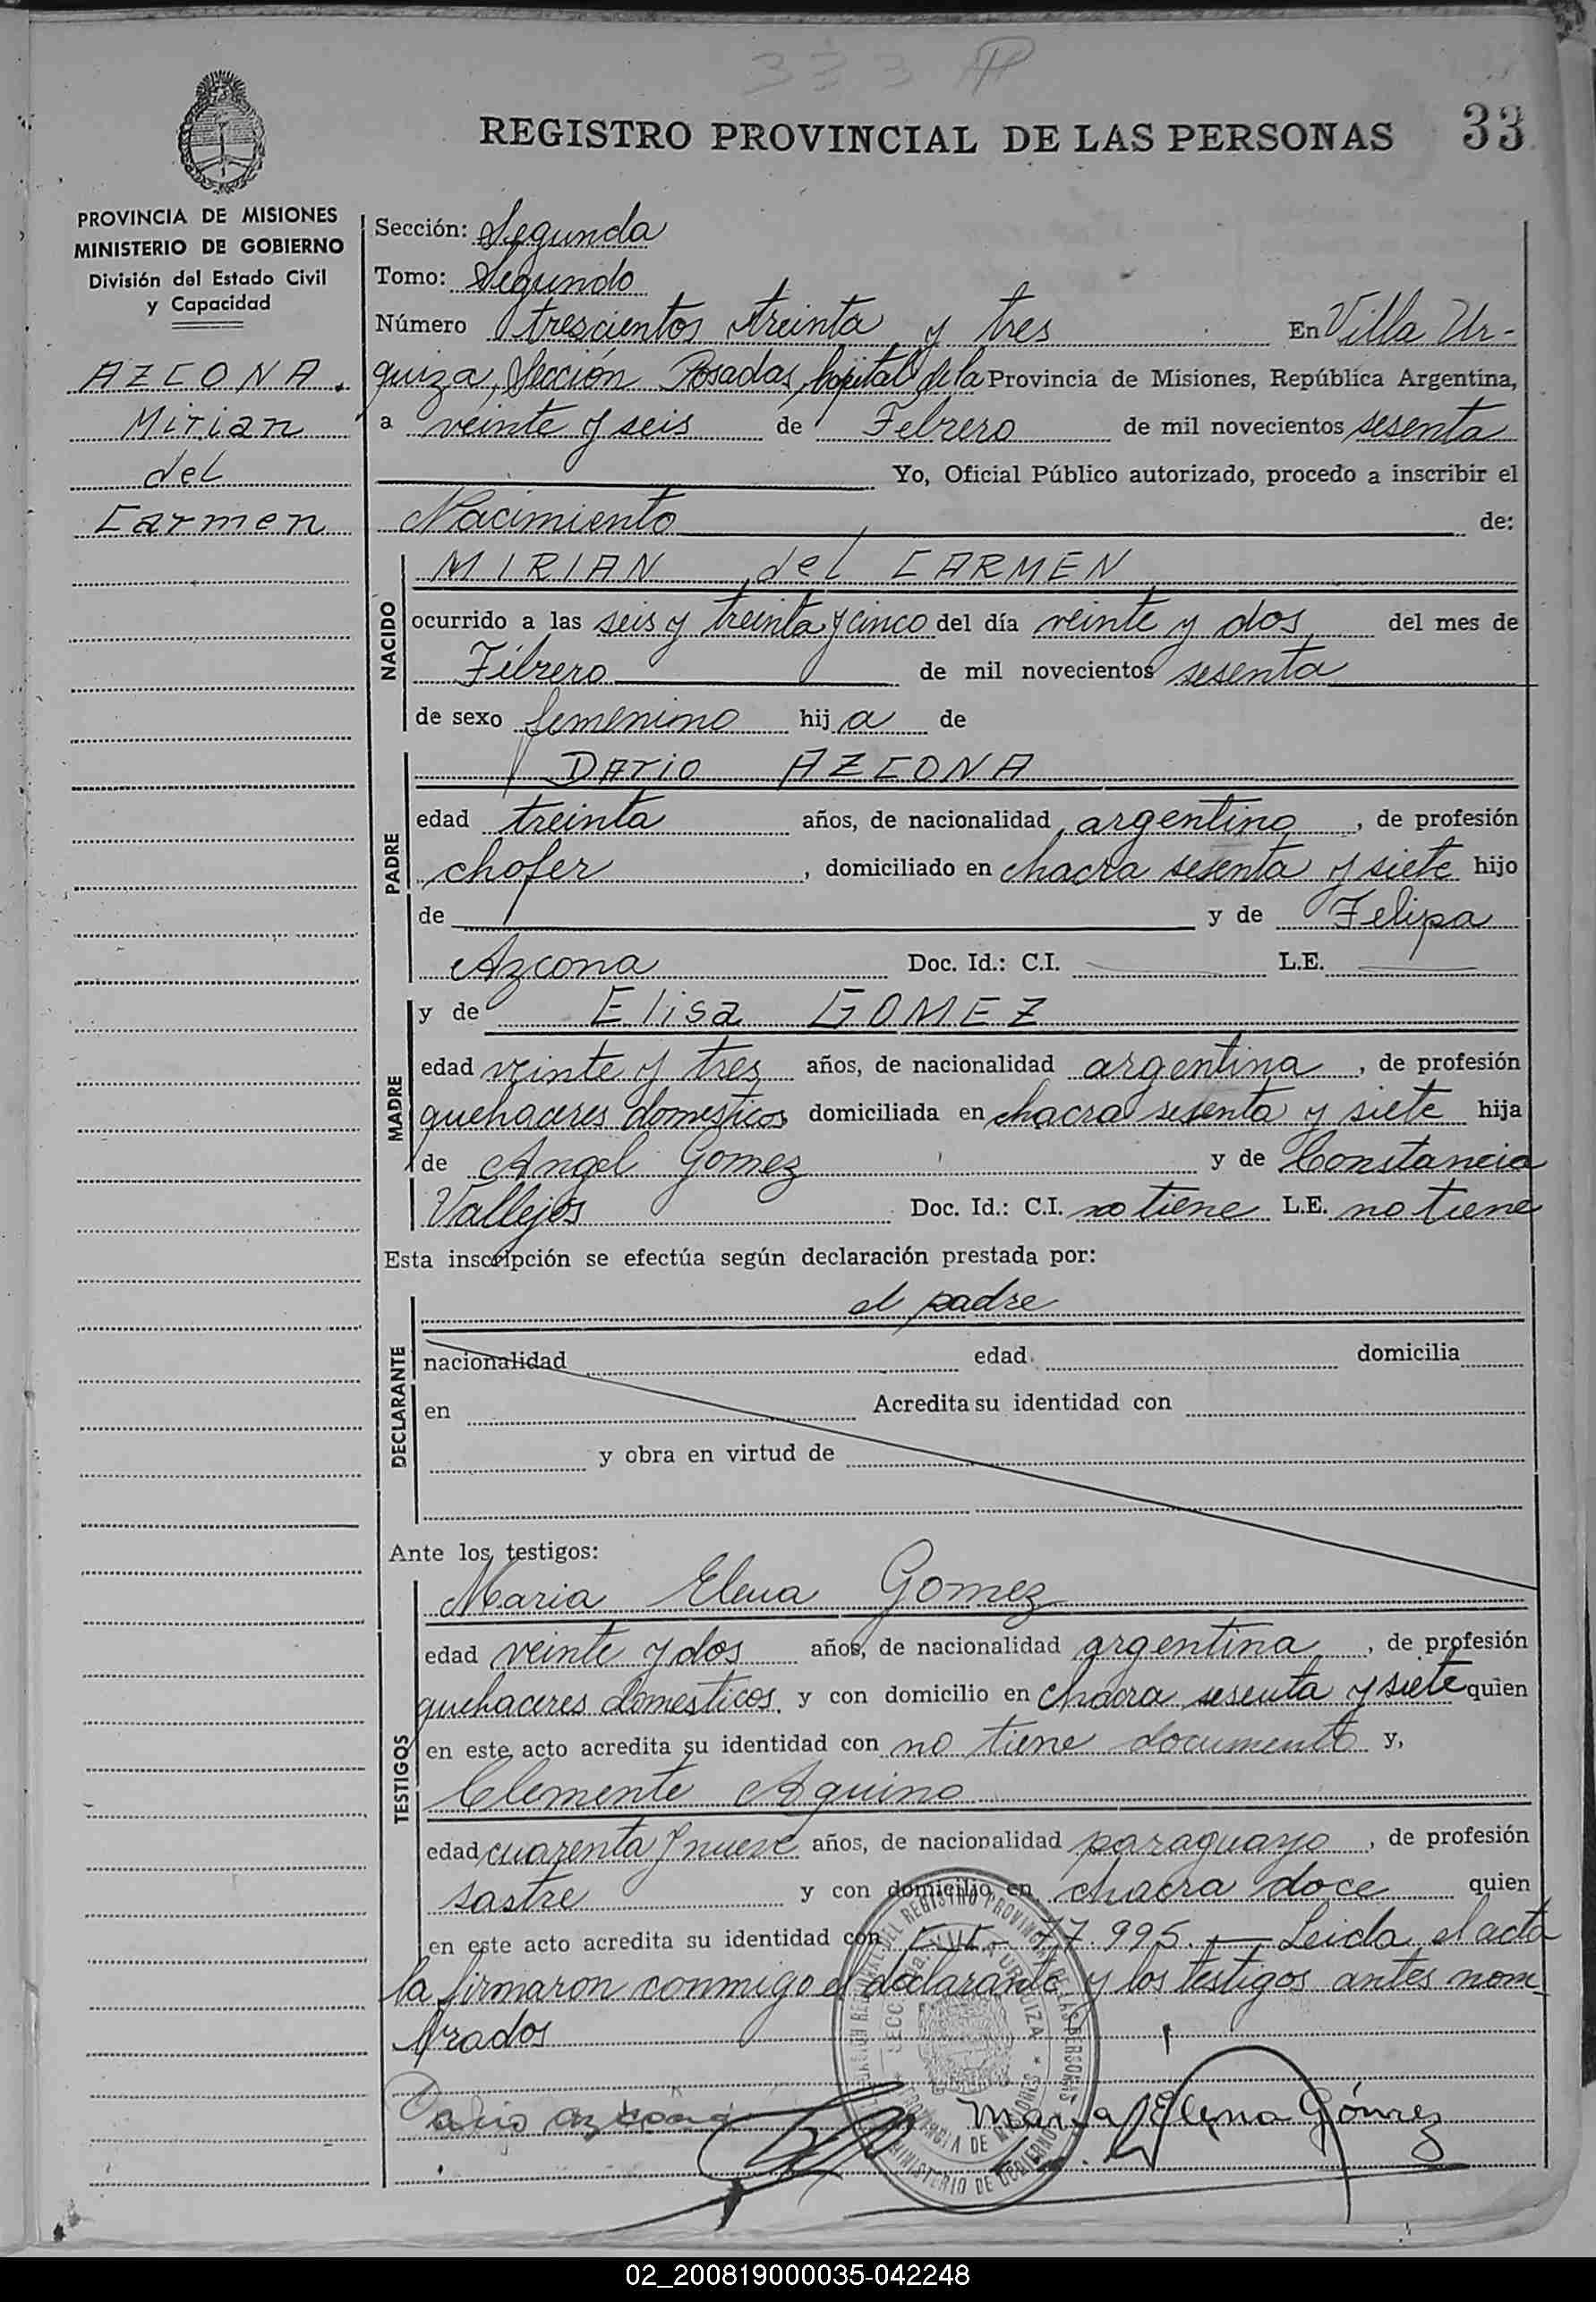 333
REGISTRO PROVINCIAL DE LAS PERSONAS 33
PROVINCIA DE MISIONES
MINISTERIO DE GOBIERNO
División del Estado Civil
y Capacidad
AZCONA.
Mirian
del
Carmen
Sección: Segunda
Tomo: Segundo
Número trescientos treinta y tres En Villa Ur-
quiza, Sección Posadas, Capital de la Provincia de Misiones, República Argentina,
a veinte y seis de Febrero de mil novecientos sesenta
Yo, Oficial Público autorizado, procedo a inscribir el
Nacimiento de:
NACIDO
MIRIAN del CARMEN
ocurrido a las seis y treinta y cinco del día veinte y dos del mes de
Febrero de mil novecientos sesenta
de sexo femenino hija de
PADRE
Dario AZCONA
edad treinta años, de nacionalidad argentino, de profesión
chofer, domiciliado en chacra sesenta y siete hijo
de y de Felipa
Azcona Doc. Id.: C.I. L.E.
MADRE
y de Elisa GOMEZ
edad veinte y tres años, de nacionalidad argentina, de profesión
quehaceres domesticos domiciliada en chacra sesenta y siete hija
de Angel Gomez y de Constancia
Vallejos Doc. Id.: C.I. no tiene L.E. no tiene
Esta inscripción se efectúa según declaración prestada por:
el padre
DECLARANTE
nacionalidad edad domicilia
en Acredita su identidad con
y obra en virtud de
Ante los testigos:
TESTIGOS
Maria Elena Gomez
edad veinte y dos años, de nacionalidad argentina, de profesión
quehaceres domesticos y con domicilio en chacra sesenta y siete quien
en este acto acredita su identidad con no tiene documento y,
Clemente Aquino
edad cuarenta y nueve años, de nacionalidad paraguayo, de profesión
sastre y con domicilio en chacra doce quien
en este acto acredita su identidad con 77.995.— Leida el acta
la firmaron conmigo el declarante y los testigos antes nom-
brados
Dario azcona Maria Elena Gómez
02_200819000035-042248